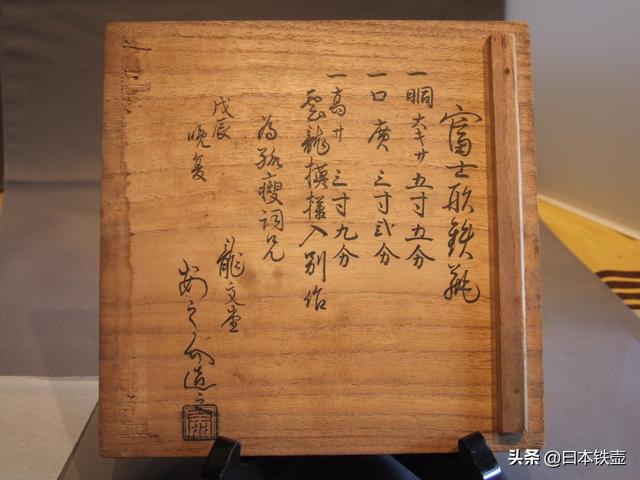 富士形鉄瓶
一胴大キサ 五寸五分
一口廣 三寸弐分
一高サ 三寸九分
雲龍模様入別作
為瘦詞兄
戊辰
晩夏
龍文堂
安之介造之
头条 @日本铁壶